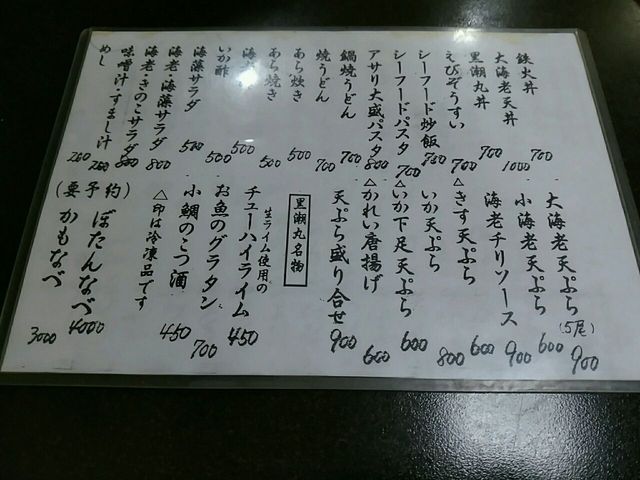 鉄火丼 700
大海老天丼 1000
黒潮丸丼 700
えびぞうすい 700
シーフード炒飯 700
シーフードパスタ 700
アサリ大盛パスタ 800
鍋焼うどん 700
焼うどん 700
あら炊き 500
あら焼き 500
海 500
いか酢 500
海藻サラダ 500
海老・海藻サラダ 800
海老・きのこサラダ 800
味噌汁・すまし汁
めし
大海老天ぷら(5尾) 900
小海老天ぷら 600
海老チリソース 900
△きす天ぷら 600
いか天ぷら 800
△いか下足天ぷら 600
△かれい唐揚げ 600
天ぷら盛り合せ 900
黒潮丸名物
生ライム使用の
チューハイライム 450
お魚のグラタン 700
小鯛のこつ酒 450
△印は冷凍品です
(要予約)
ぼたんなべ 4000
かもなべ 3000